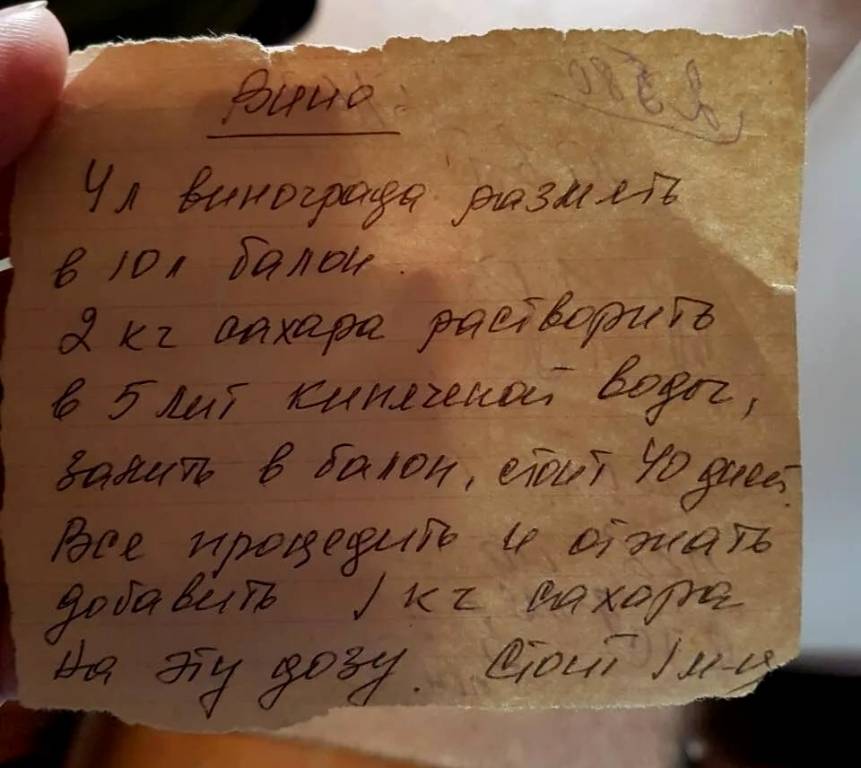 Вино
4 л винограда размять
в 10 л балон.
2 кг сахара растворить
в 5 лит кипяченой воды,
залить в балон, стоит 40 дней.
Все процедить и отжать
добавить 1 кг сахара
на эту дозу. Стоит 1 м-ц